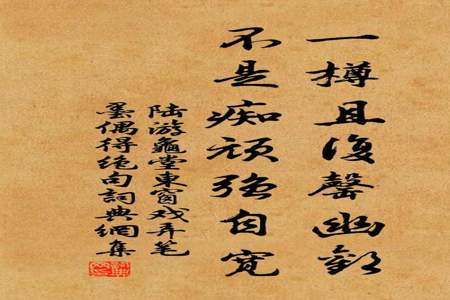 一樽且復罄幽歡
不是痴頑強自寬
陸游龜堂東窗戲弄筆
墨偶得絕句詞典網集